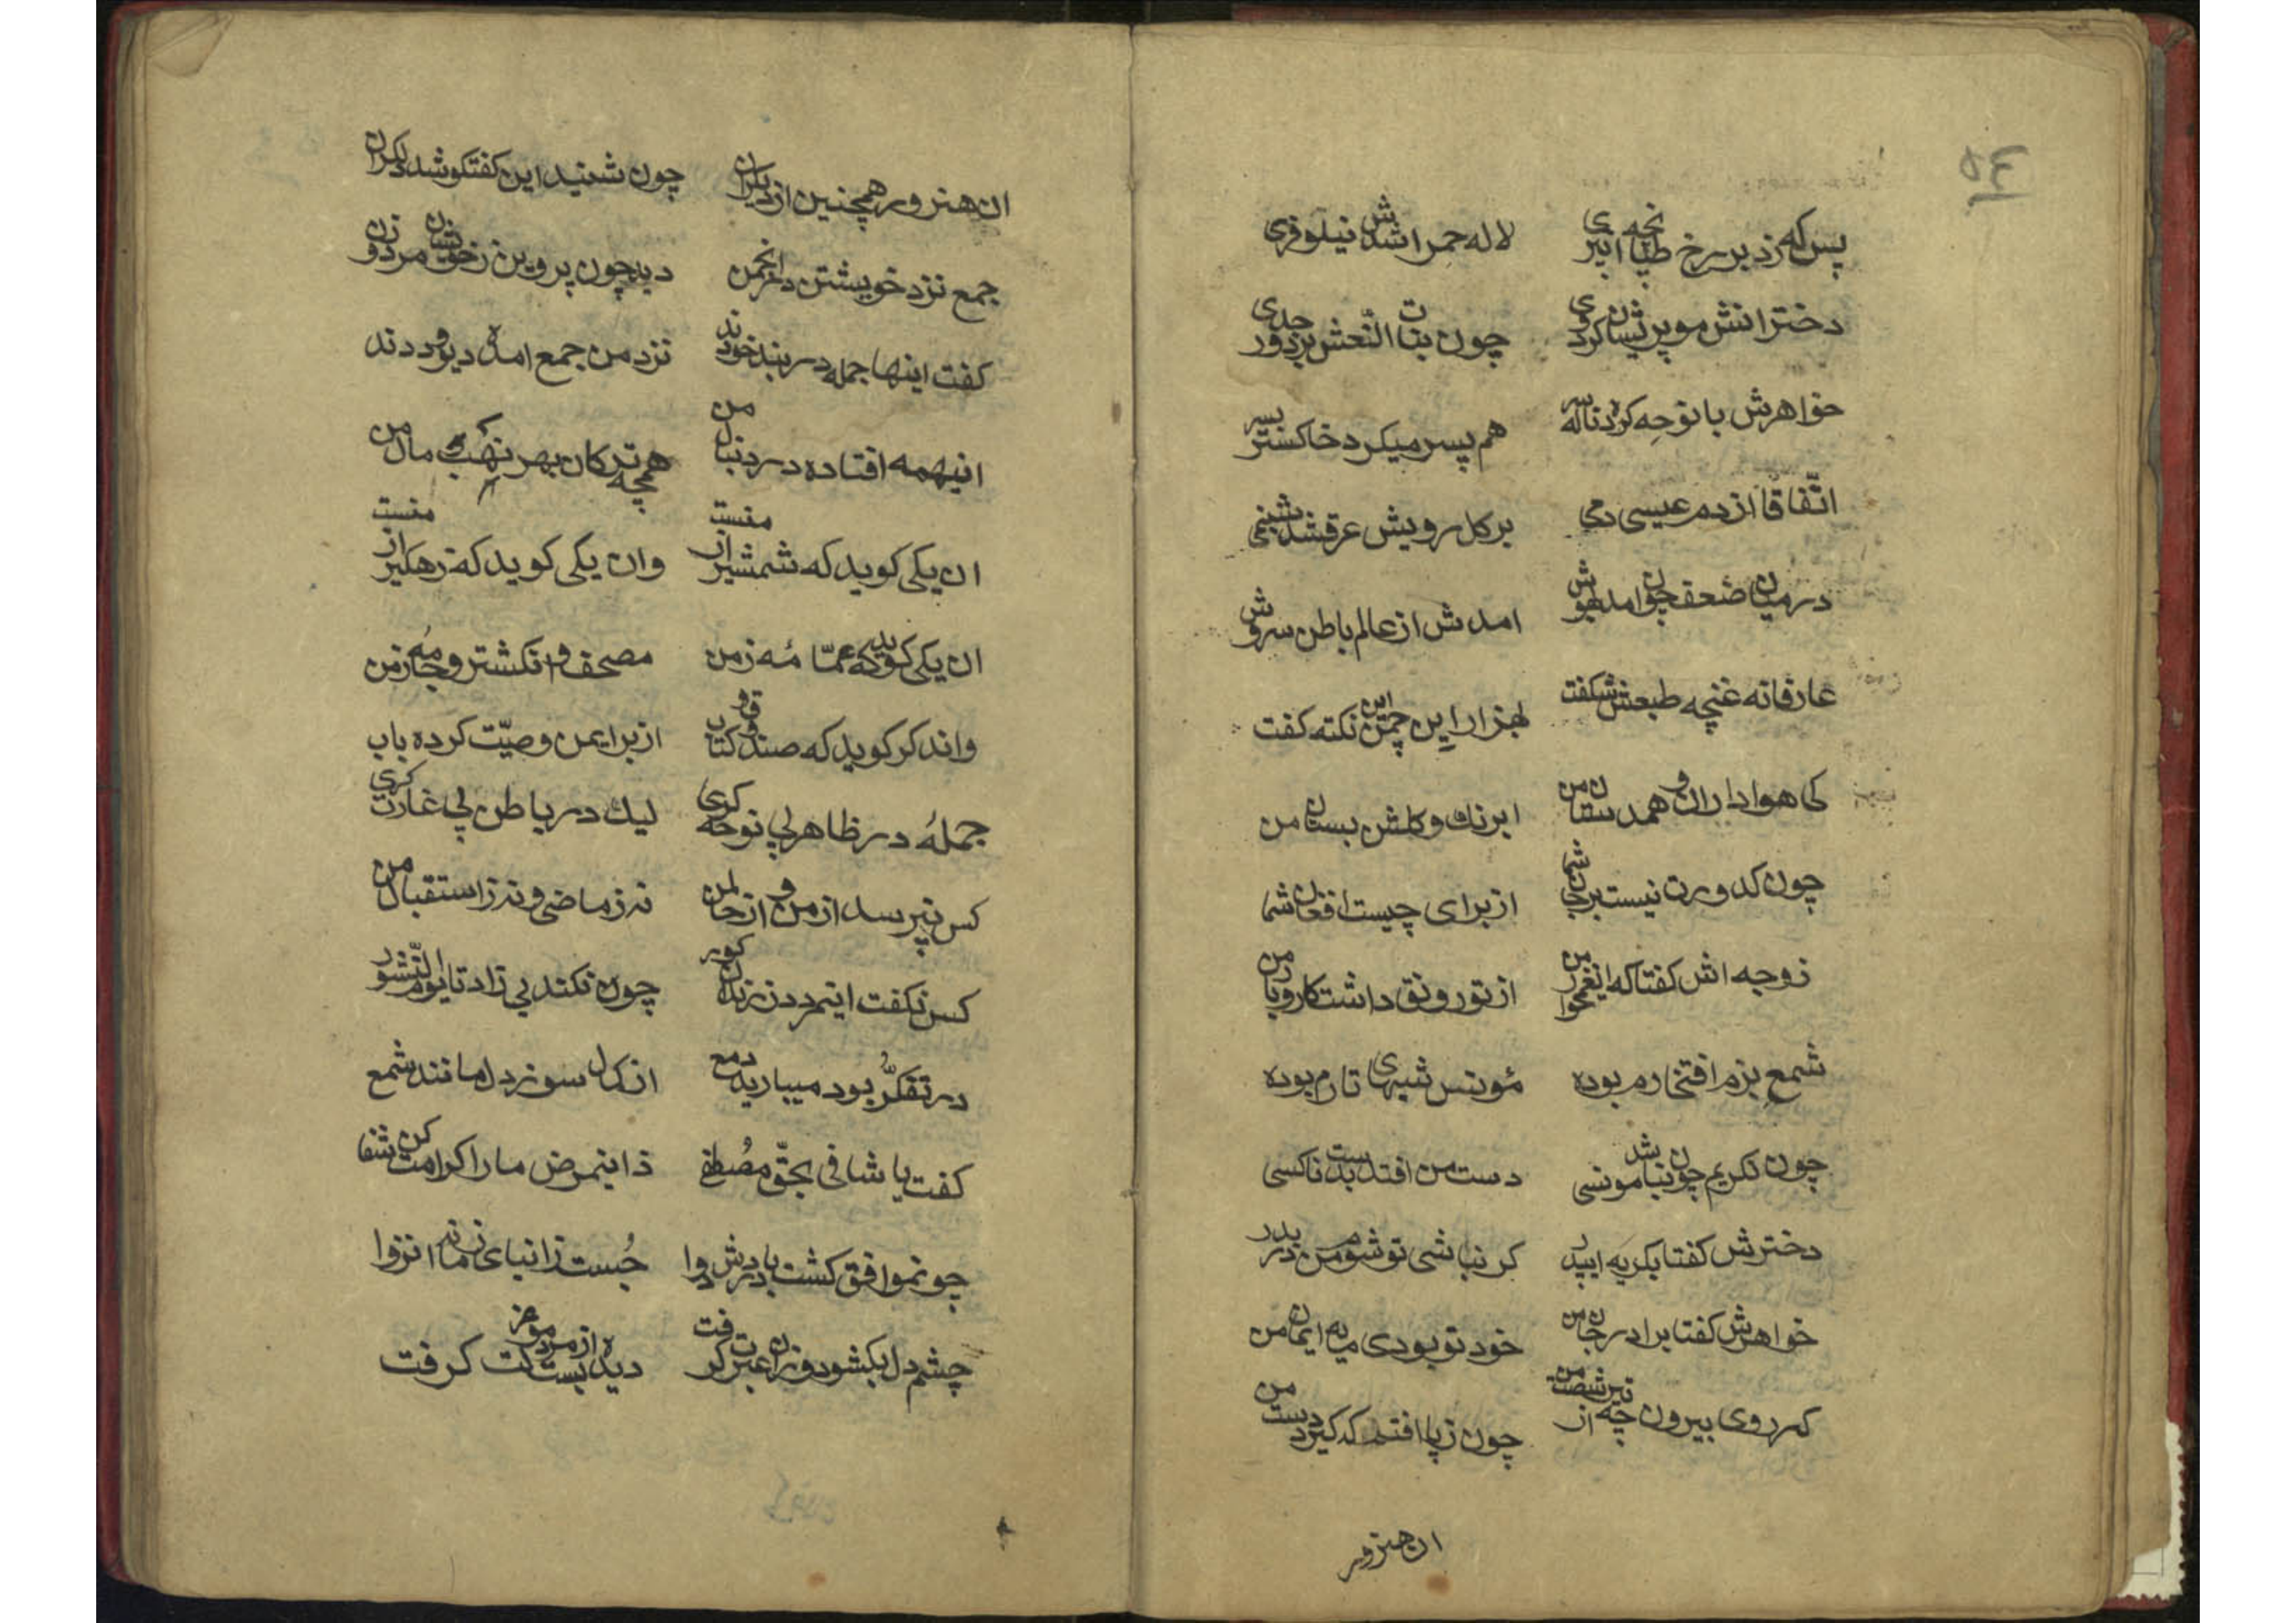 ۵۴
پس که زد بر رخ طپانچه ابتری لاله حمراش شد نیلوفری
دخترانش مو پریشان کردی چون بنات النعش بر دور جدی
خواهرش با نوحه کرده ناله سر هم پسر میکرد خاکستر بسر
اتّفاقًا از دم عیسی دمی بر کل رویش عرق شد شبنمی
در میان ضعف چون امد بهوش امدش از عالم باطن سروش
عارفانه غنچه طبعش شکفت بهزاران این چمن نکته کفت
کی هواداران و همدستان من ابرنك و کلشن بستان من
چون کدورت نیست بر جان شما از برای چیست افغان شما
زوجه اش کفتا که ای غمخوار من از تو رونق داشت کار و بار من
شمع بزم افتخارم بوده مؤنس شبهای تارم بوده
چون نکریم چون نباشد مونسی دست من افتد بدست ناکسی
دخترش کفتا بکریه ای پدر کر نباشی تو شوم من در بدر
خواهرش کفتا برادر جان من خود تو بودی مایه ایمان من
کر روی بیرون چه تیر از شصت من چون ز پا افتم که کیرد دست من
ان هنرور
ان هنرور همچنین از دیکران چون شنید این کفتکو شد دلکران
جمع نزد خویشتن در انجمن دید چون پروین ز خویشان مرد و زن
کفت اینها جمله در بند خودند نزد من جمع امده دیو و ددند
اینهمه افتاده در دنبال من همچه ترکان بهر نهب مال من
ان یکی کوید که شمشیر از منست وان یکی کوید که زهکیر از منست
ان یکی کوید که عمّامه ز من مصحف و انکشتر و جامه ز من
واندکر کوید که صندوق و کتاب از برایمن وصیّت کرده باب
جملهٔ در ظاهر پی نوحه کری لیك در باطن پی غارت کری
کس نپرسد از من و از حال من نه ز ماضی و نه ز استقبال من
کس نکفت اینمرد در زندان کور چون کند بی زاد تا یوم النّشور
در تفکّر بود میبارید دمع از کل سوز دل مانند شمع
کفت یا شافی بحقّ مصطفی زاینمرض ما را کرامت کن شفا
چونموافق کشت با دردش دوا جُست ز انبای زمانه انزوا
چشم دل بکشود وزان عبرت کرفت دیده از مردم ببست کرفت